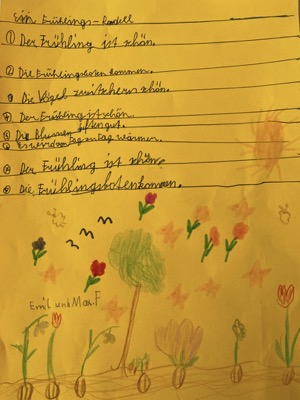 Ein Frühlings-Rondell
① Der Frühling ist schön.
② Die Frühlingsboten kommen.
③ Die Vögel zwitschern schön.
④ Der Frühling ist schön.
⑤ Die Blumen duften gut.
⑥ Es wird von Tag zu Tag wärmer.
⑦ Der Frühling ist schön.
⑧ Die Frühlingsboten kommen.
Emil und Max.F